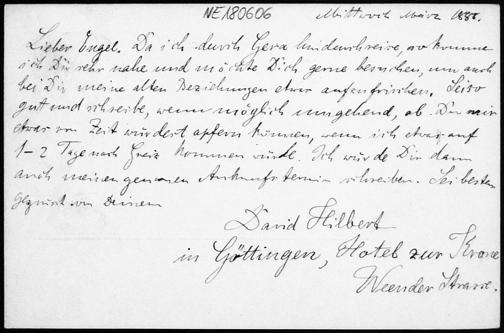 NE180606
Mittwoch März 188
Lieber Engel. Da ich durch Gera hindurchreise, so komme
ich Dir sehr nahe und möchte Dich gerne besuchen, um auch
bei Dir meine alten Beziehungen etwas aufzufrischen. Sei so
gut und schreibe, wenn möglich umgehend, ob Du mir
etwas von Zeit würdest opfern können, wenn ich etwa auf
1-2 Tage nach Greiz kommen würde. Ich würde Dir dann
auch meinen genauen Ankunftstermin schreiben. Sei bestens
gegrüsst von Deinem
David Hilbert
in Göttingen, Hotel zur Krone
Weender Strasse.